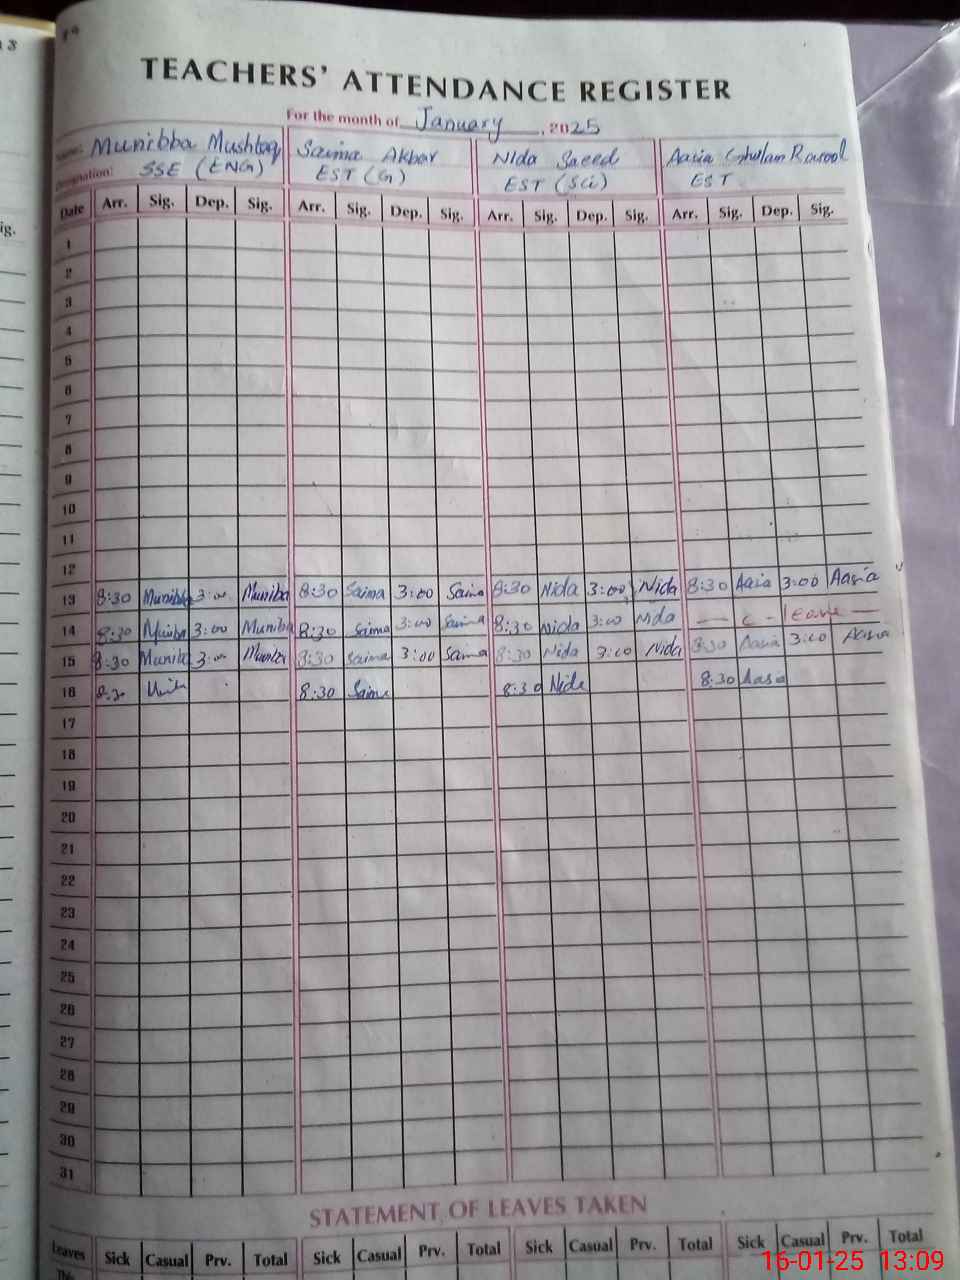 TEACHERS' ATTENDANCE REGISTER
For the month of January, 2025
Name: Munibba Mushtaq Saima Akbar Nida Saeed Aasia Ghulam Rasool
Designation: SSE (ENG) EST (G) EST (Sci) EST
Date Arr. Sig. Dep. Sig. Arr. Sig. Dep. Sig. Arr. Sig. Dep. Sig. Arr. Sig. Dep. Sig.
1
2
3
4
5
6
7
8
9
10
11
12
13 8:30 Munibba 3:00 Muniba 8:30 Saima 3:00 Saima 8:30 Nida 3:00 Nida 8:30 Aasia 3:00 Aasia
14 8:30 Muniba 3:00 Muniba 8:30 Saima 3:00 Saima 8:30 Nida 3:00 Nida — C - leave —
15 8:30 Muniba 3:00 8:30 Saima 3:00 Saima 8:30 Nida 3:00 Nida 8:30 Aasia 3:00 Aasia
16 8:30 8:30 Saima 8:30 Nida 8:30 Aasia
17
18
19
20
21
22
23
24
25
26
27
28
29
30
31
STATEMENT OF LEAVES TAKEN
Leaves Sick Casual Prv. Total Sick Casual Prv. Total Sick Casual Prv. Total Sick Casual Prv. Total
This
16-01-25 13:09